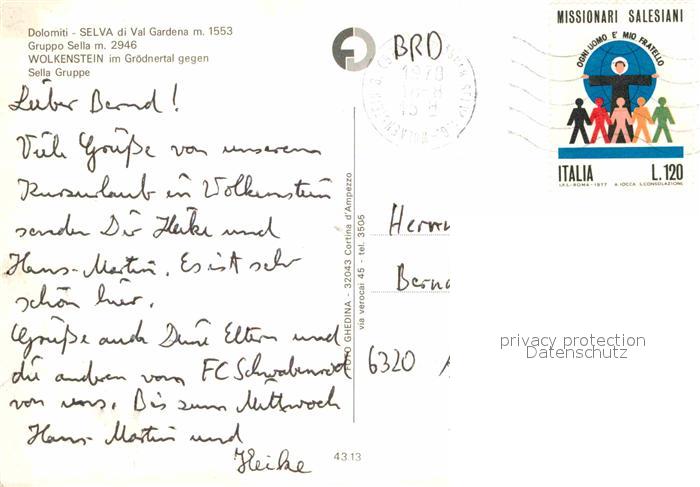 Dolomiti - SELVA di Val Gardena m. 1553
Gruppo Sella m. 2946
WOLKENSTEIN im Grödnertal gegen
Sella Gruppe
Lieber Bernd!
Viele Grüße von unserem
Kurzurlaub in Wolkenstein
senden Dir Heike und
Hans-Martin. Es ist sehr
schön hier.
Grüße auch Deine Eltern und
die anderen vom FC Schwabenrod
von uns. Bis zum Mittwoch
Hans-Martin und
Heike
FOTO GHEDINA - 32043 Cortina d'Ampezzo
via verocai 45 - tel. 3505
43.13
BRD
1978
Herrn
Bernd
6320 A
MISSIONARI SALESIANI
OGNI UOMO E' MIO FRATELLO
ITALIA L.120
I.P.S.-ROMA-1977
privacy protection
Datenschutz